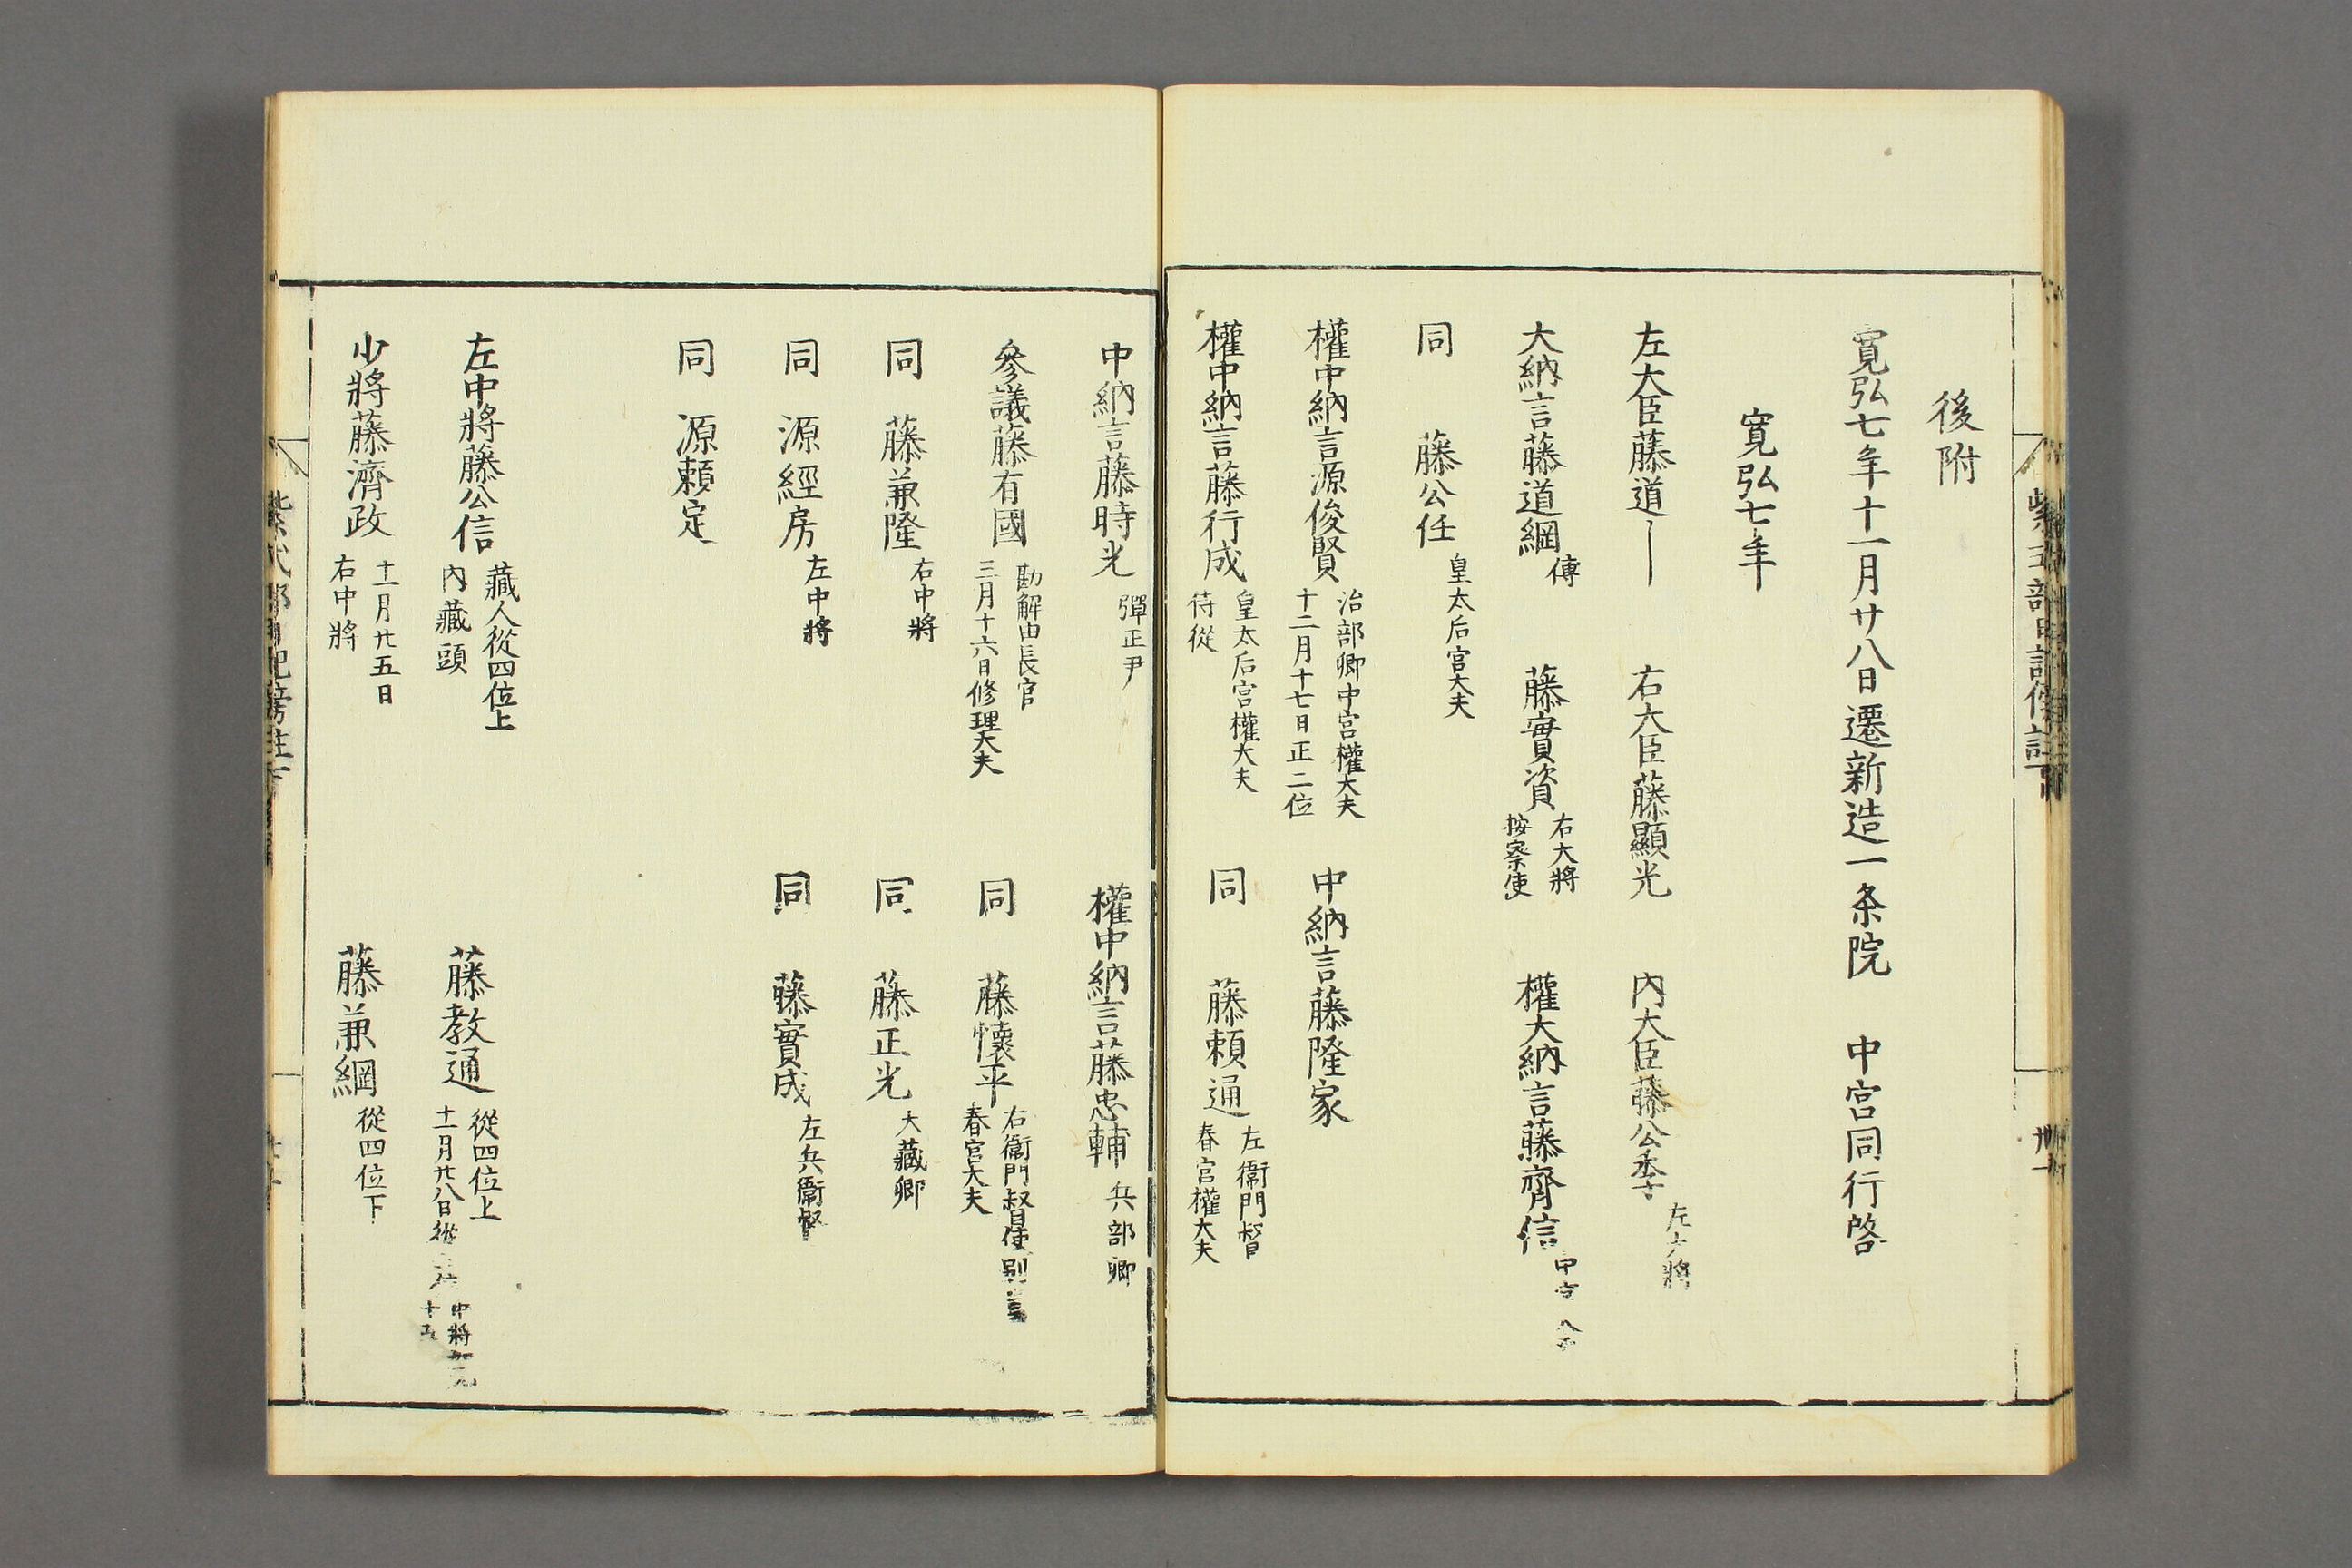 後附
寛弘七年十一月廿八日遷新造一条院 中宮同行啓
寛弘七年
左大臣藤道 右大臣藤顯光 內大臣藤公季 左大將
大納言藤道綱 傅 藤實資 右大將 按察使 權大納言藤齊信 中宮
同 藤公任 皇太后宮大夫
權中納言源俊賢 治部卿中宮權大夫 十二月十七日正二位 中納言藤隆家
權中納言藤行成 皇太后宮權大夫 侍從 同 藤頼通 左衞門督 春宮權大夫
中納言藤時光 彈正尹 權中納言藤忠輔 兵部卿
參議藤有國 勘解由長官 三月十六日修理大夫 同 藤懷平 右衞門督使別當 春宮大夫
同 藤兼隆 右中將 同 藤正光 大藏卿
同 源經房 左中將 同 藤實成 左兵衞督
同 源頼定
左中將藤公信 藏人從四位上 內藏頭 藤教通 從四位上 十一月廿八日從 中將
少將藤濟政 十一月廿五日 右中將 藤兼綱 從四位下
紫式部日記傍註下